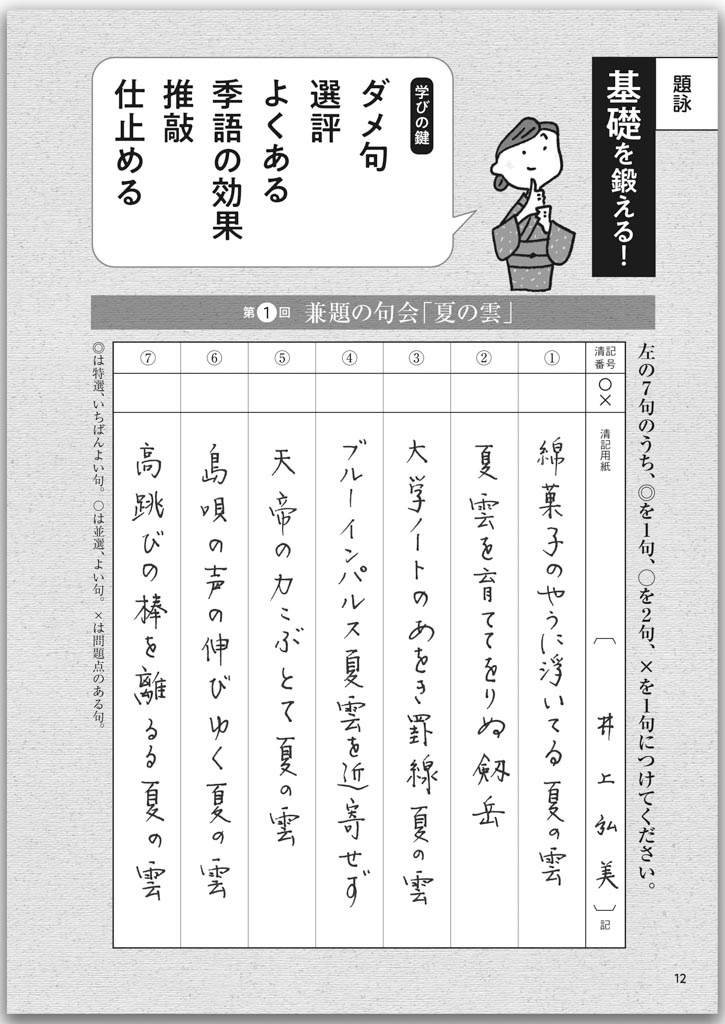 題詠
基礎を鍛える!
学びの鍵
ダメ句
選評
よくある
季語の効果
推敲
仕止める
第1回 兼題の句会「夏の雲」
左の7句のうち、◎を1句、○を2句、×を1句につけてください。
清記番号
○×
清記用紙
〔 井上弘美 〕記
① 綿菓子のやうに浮いてる夏の雲
② 夏雲を育ててをりぬ剱岳
③ 大学ノートのあをき罫線夏の雲
④ ブルーインパルス夏雲を近寄せず
⑤ 天帝の力こぶとて夏の雲
⑥ 島唄の声の伸びゆく夏の雲
⑦ 高跳びの棒を離るる夏の雲
◎は特選、いちばんよい句。○は並選、よい句。×は問題点のある句。
12